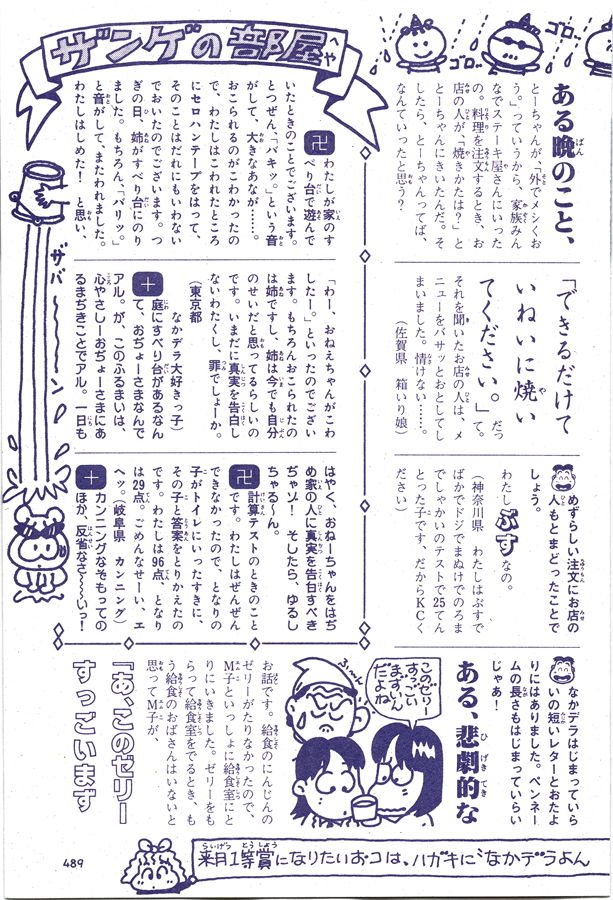 ゴロ。
ゴロ。
ある晩のこと、
とーちゃんが、「外でメシくお
う。」っていうから、家族みん
なでステーキ屋さんにいった
の。料理を注文するとき、お
店の人が、「焼きかたは?」と
とーちゃんにきいたんだ。そ
したら、とーちゃんってば、
なんていったと思う?
「できるだけて
いねいに焼い
てください。」
って。だっ
それを聞いたお店の人は、メ
ニューをバサッとおとしてし
まいました。情けない……。
(佐賀県 箱いり娘)
めずらしい注文にお店の
人もとまどったことで
しょう。
わたしぶすなの。
(神奈川県 わたしはぶすで
ばかでドジでまぬけでのろま
でしゃかいのテストで25てん
とった子です、だからKCく
ださい)
なかデラはじまっていら
いの短いレターとおたよ
りにはありました。ペンネー
ムの長さもはじまっていらい
じゃあ!
ザンゲの部屋
卍
わたしが家のす
べり台で遊んで
いたときのことでございます。
とつぜん、「バキッ。」という音
がして、大きなあなが……。
おこられるのがこわかったの
で、わたしはこわれたところ
にセロハンテープをはって、
そのことはだれにもいわない
でおいたのでございます。つ
ぎの日、姉がすべり台にのり
ました。もちろん、「バリッ。」
と音がして、またわれました。
わたしはしめた!と思い、
「わー、おねえちゃんがこわ
したー。」といったのでござい
ます。もちろんおこられたの
は姉ですし、姉は今でも自分
のせいだと思ってるらしいの
です。いまだに真実を告白し
ないわたくし、罪でしょーか。
(東京都
なかデラ大好きっ子)
十
庭にすべり台があるなん
て、おぢょーさまなんで
アル。が、このふるまいは、
心やさしーおぢょーさまにあ
るまぢきことでアル。一日も
はやく、おねーちゃんをはぢ
め家の人に真実を告白すべき
ぢゃゾ! そしたら、ゆるし
ちゃる〜ん。
卍
計算テストのときのこと
です。わたしはぜんぜん
できなかったので、となりの
子がトイレにいったすきに、
その子と答案をとりかえたの
です。わたしは96点、となり
は29点。ごめんなせーい、エ
ヘッ。(岐阜県 カンニング)
十
カンニングなぞもっての
ほか、反省なさ〜〜いっ!
ザバ〜〜〜ーン
ある、悲劇的な
お話です。給食のにんじんの
ゼリーがたりなかったので、
M子といっしょに給食室にと
りにいきました。ゼリーをも
らって給食室をでるとき、も
う給食のおばさんはいないと
思ってM子が、
「あ、このゼリー
すっごいまず
このゼリー
すっごい
まずいん
だよね
来月1等賞になりたいおコは、ハガキに"なかデラよん
489